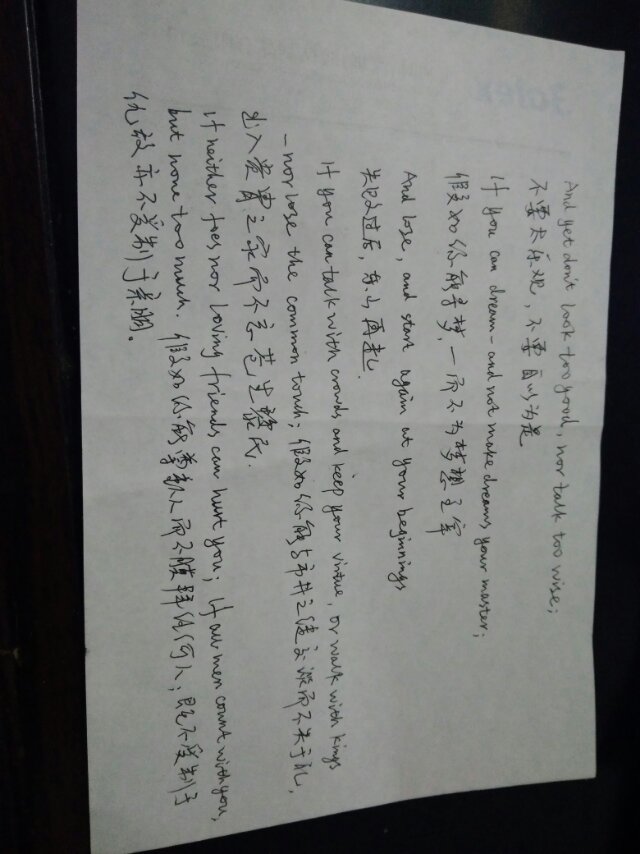 And yet don't look too good, nor talk too wise;
不要太乐观，不要自以为是
If you can dream - and not make dreams your master;
假如你能寻梦，一而不为梦想主宰
And lose, and start again at your beginnings
失败过后，东山再起.
If you can talk with crowds and keep your virtue, or walk with kings
- nor lose the common touch; 假如你能与市井之徒交谈而不失于礼，
出入贵胄之家而不忘芒生黎民.
If neither foes nor loving friends can hurt you; If all men count with you,
but none too much. 假如你能尊敬人而不膜拜任何人；既不受制于
仇敌亦不受制于亲朋。